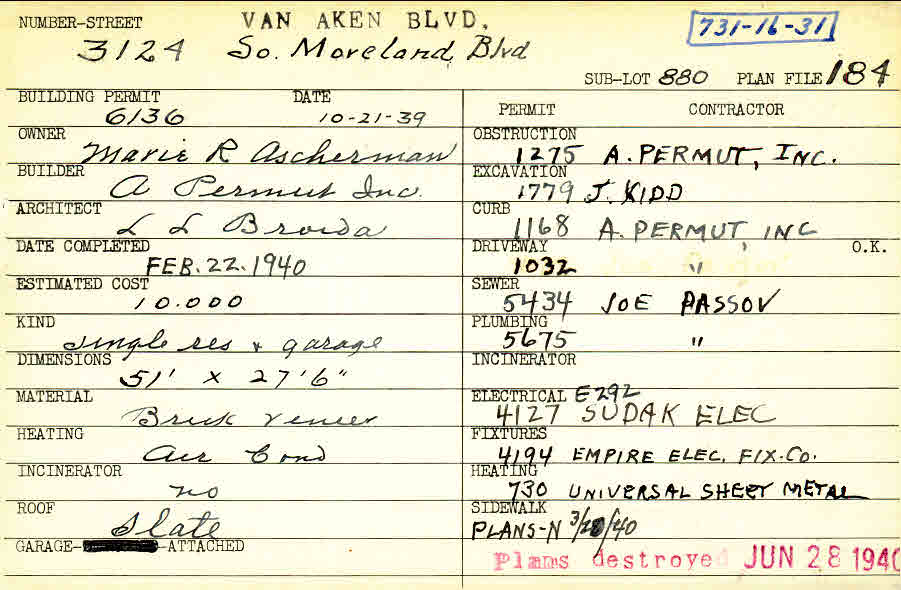 NUMBER-STREET VAN AKEN BLVD. 731-16-31
3124 So. Moreland Blvd
SUB-LOT 880 PLAN FILE 184
BUILDING PERMIT DATE
6136 10-21-39
OWNER
Marie R Ascherman
BUILDER
A Permut Inc.
ARCHITECT
L L Broida
DATE COMPLETED
FEB. 22. 1940
ESTIMATED COST
10.000
KIND
single res & garage
DIMENSIONS
51' X 27'6"
MATERIAL
Brick veneer
HEATING
Air Cond
INCINERATOR
no
ROOF
Slate
GARAGE- -ATTACHED
PERMIT CONTRACTOR
OBSTRUCTION
1275 A. PERMUT, INC.
EXCAVATION
1779 J. KIDD
CURB
1168 A. PERMUT, INC
DRIVEWAY O.K.
1032 "
SEWER
5434 JOE PASSOV
PLUMBING
5675 "
INCINERATOR
ELECTRICAL E292
4127 SUDAK ELEC
FIXTURES
4194 EMPIRE ELEC. FIX. Co.
HEATING
730 UNIVERSAL SHEET METAL
SIDEWALK
PLANS-N 3/ /40
Plans destroyed JUN 28 1940